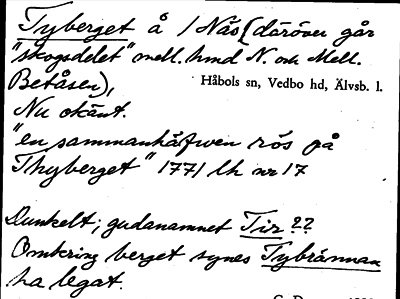 Tyberget å / Nås (däröver går
"skogsdelet" mell. hmd N. och Mell.
Betåsen),
Håbols sn, Vedbo hd, Älvsb. l.
Nu okänt.
"en sammanhäfwen rös på
Thyberget" 1771 lh nr 17
Dunkelt; gudanamnet Tir ??
Omkring berget synes Tybrännan
ha legat.